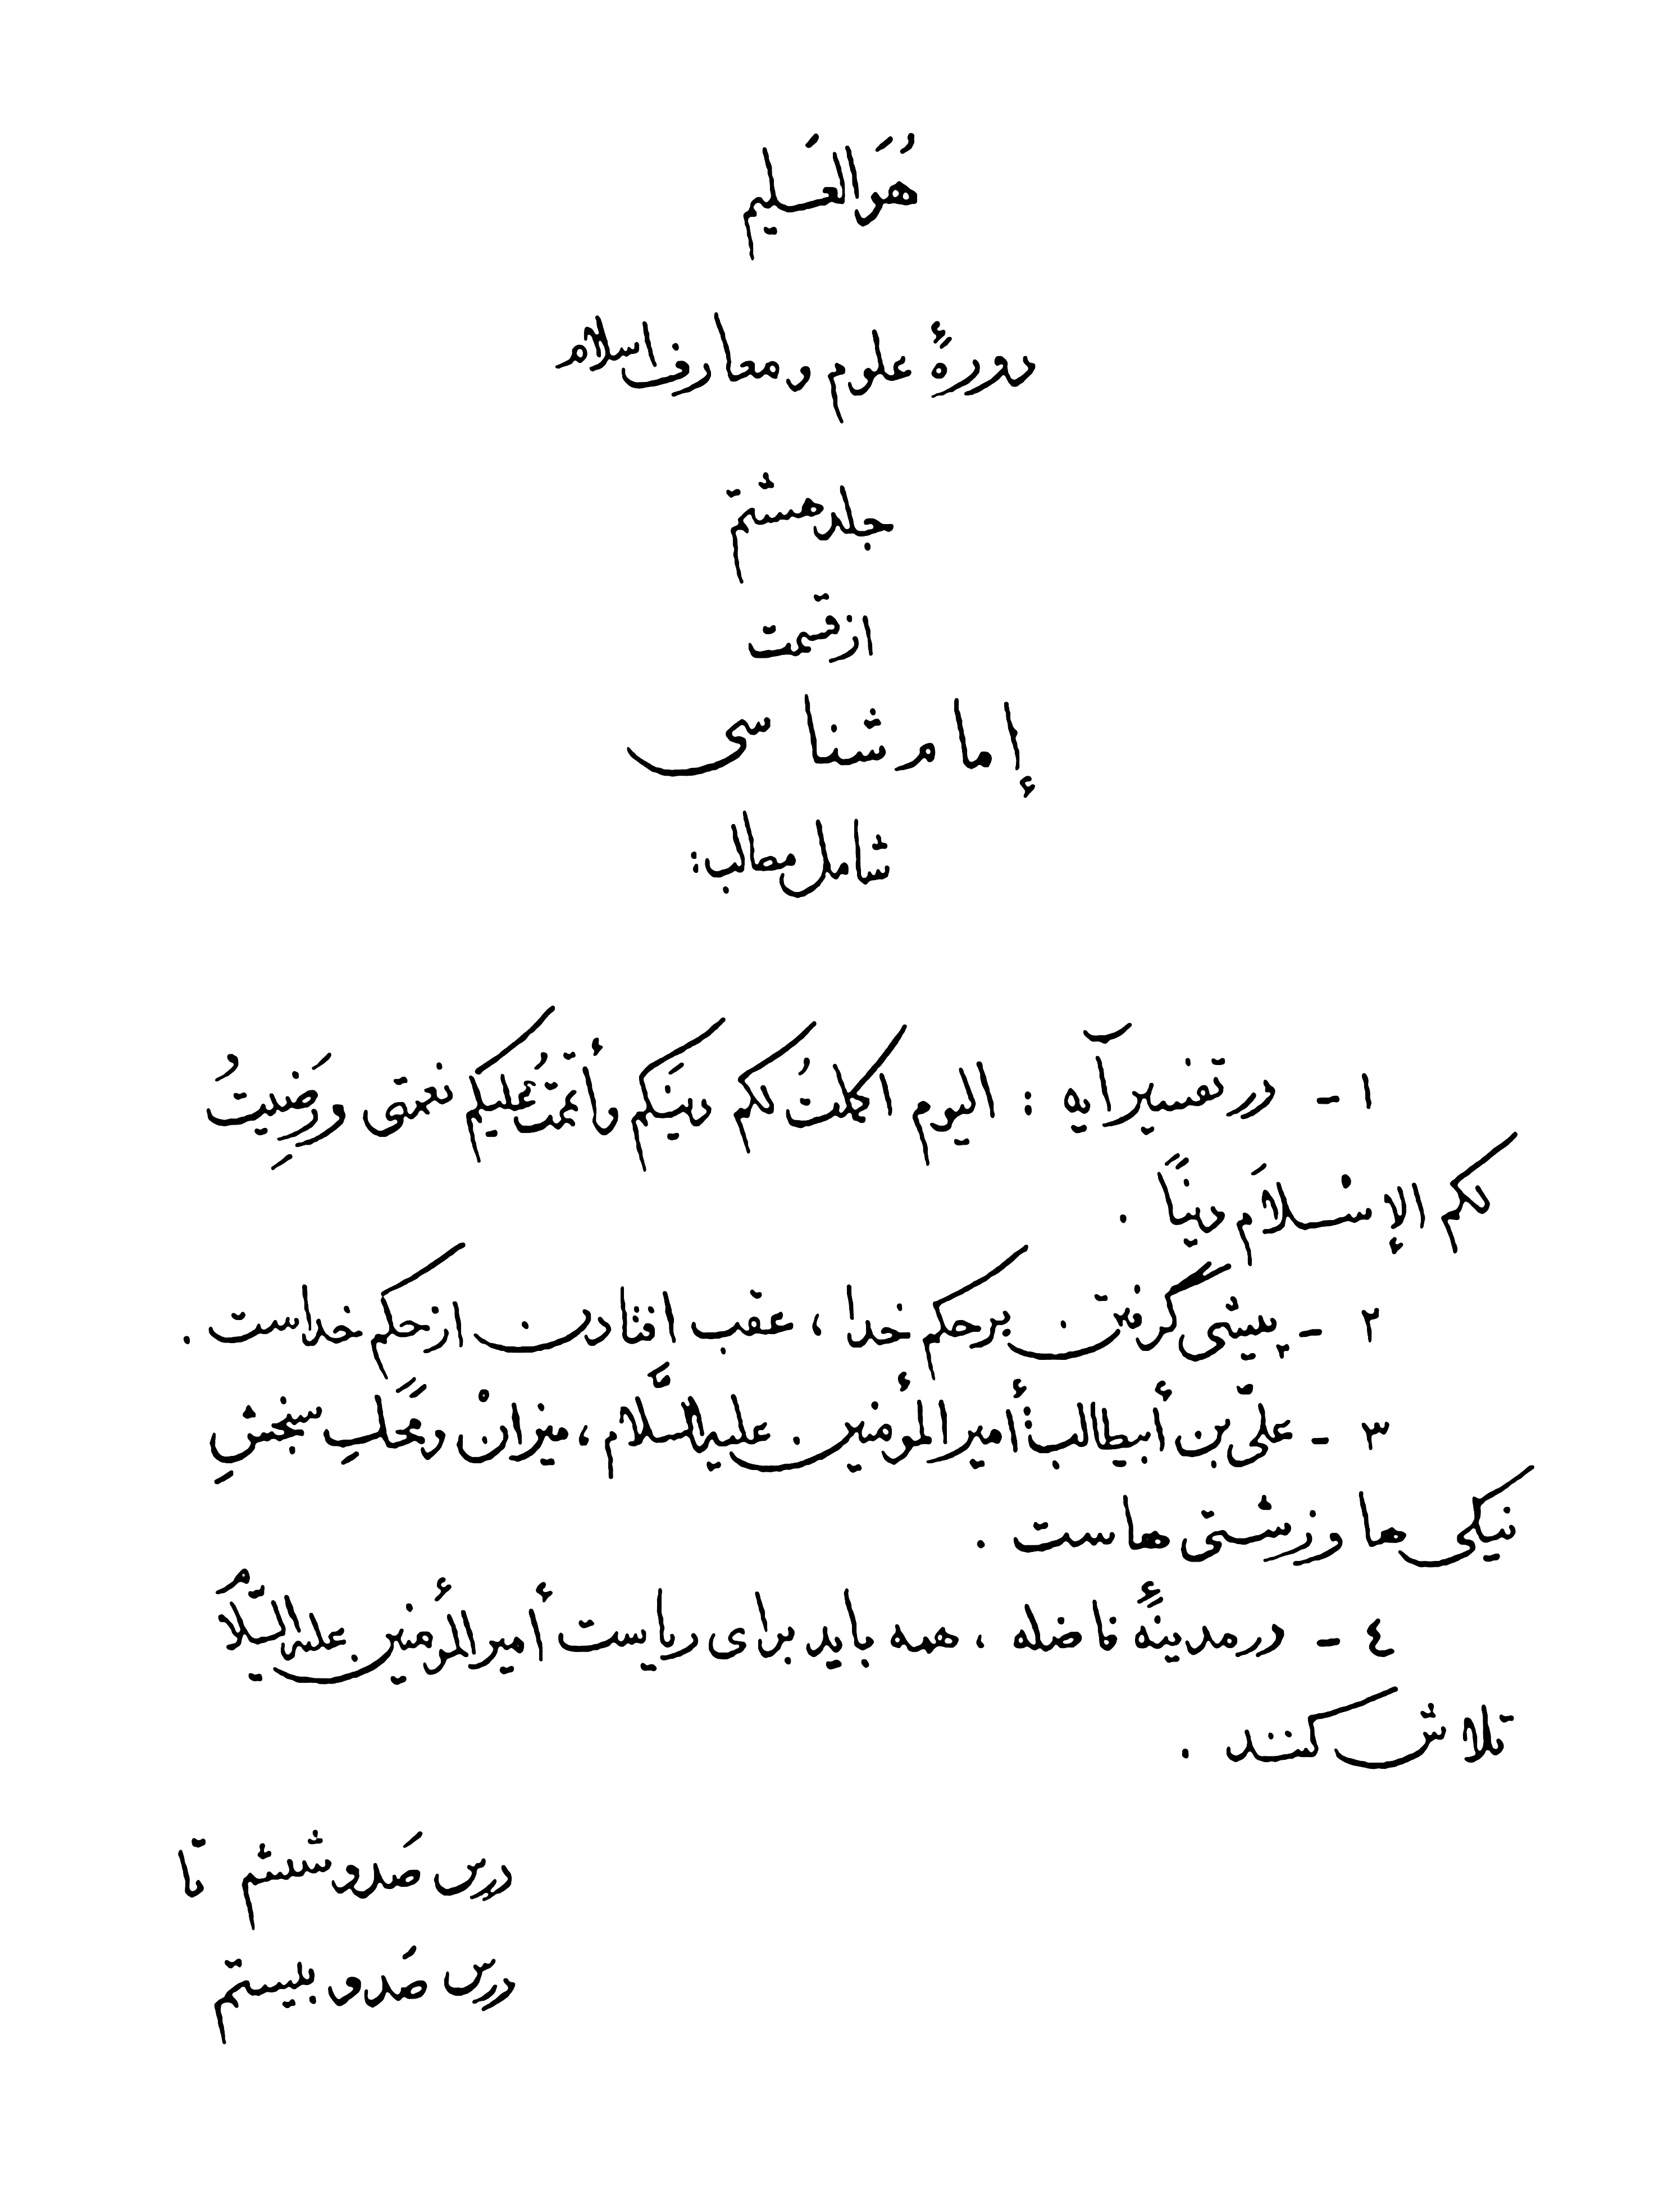 هُوَ العَلیم
دورهٔ علوم و معارف اسلام
جلد هشتم
از قسمت
إمام شناسی
شامل مطالب:
۱ - در تفسیر آیه : الیوم اکملتُ لکم دینَکم وأتمَمتُ علیکم نعمتی ورَضِیتُ
لکم الإسْلاَمَ دینًا .
۲ - پیشی گرفتن بر حکم خدا ، عقب افتادن از حکم خداست .
۳ - علیّ بن أبیطالب أمیر المؤمنین علیه السَّلام ، میزانْ ومَحَکِّ سنجشِ
نیکی ها و زشتی هاست .
٤ - در مدینهٔ فاضله ، همه باید برای ریاست أمیر المؤمنین علیه السّلامُ
تلاش کنند .
درس صَد و ششم تا
درس صَد و بیستم